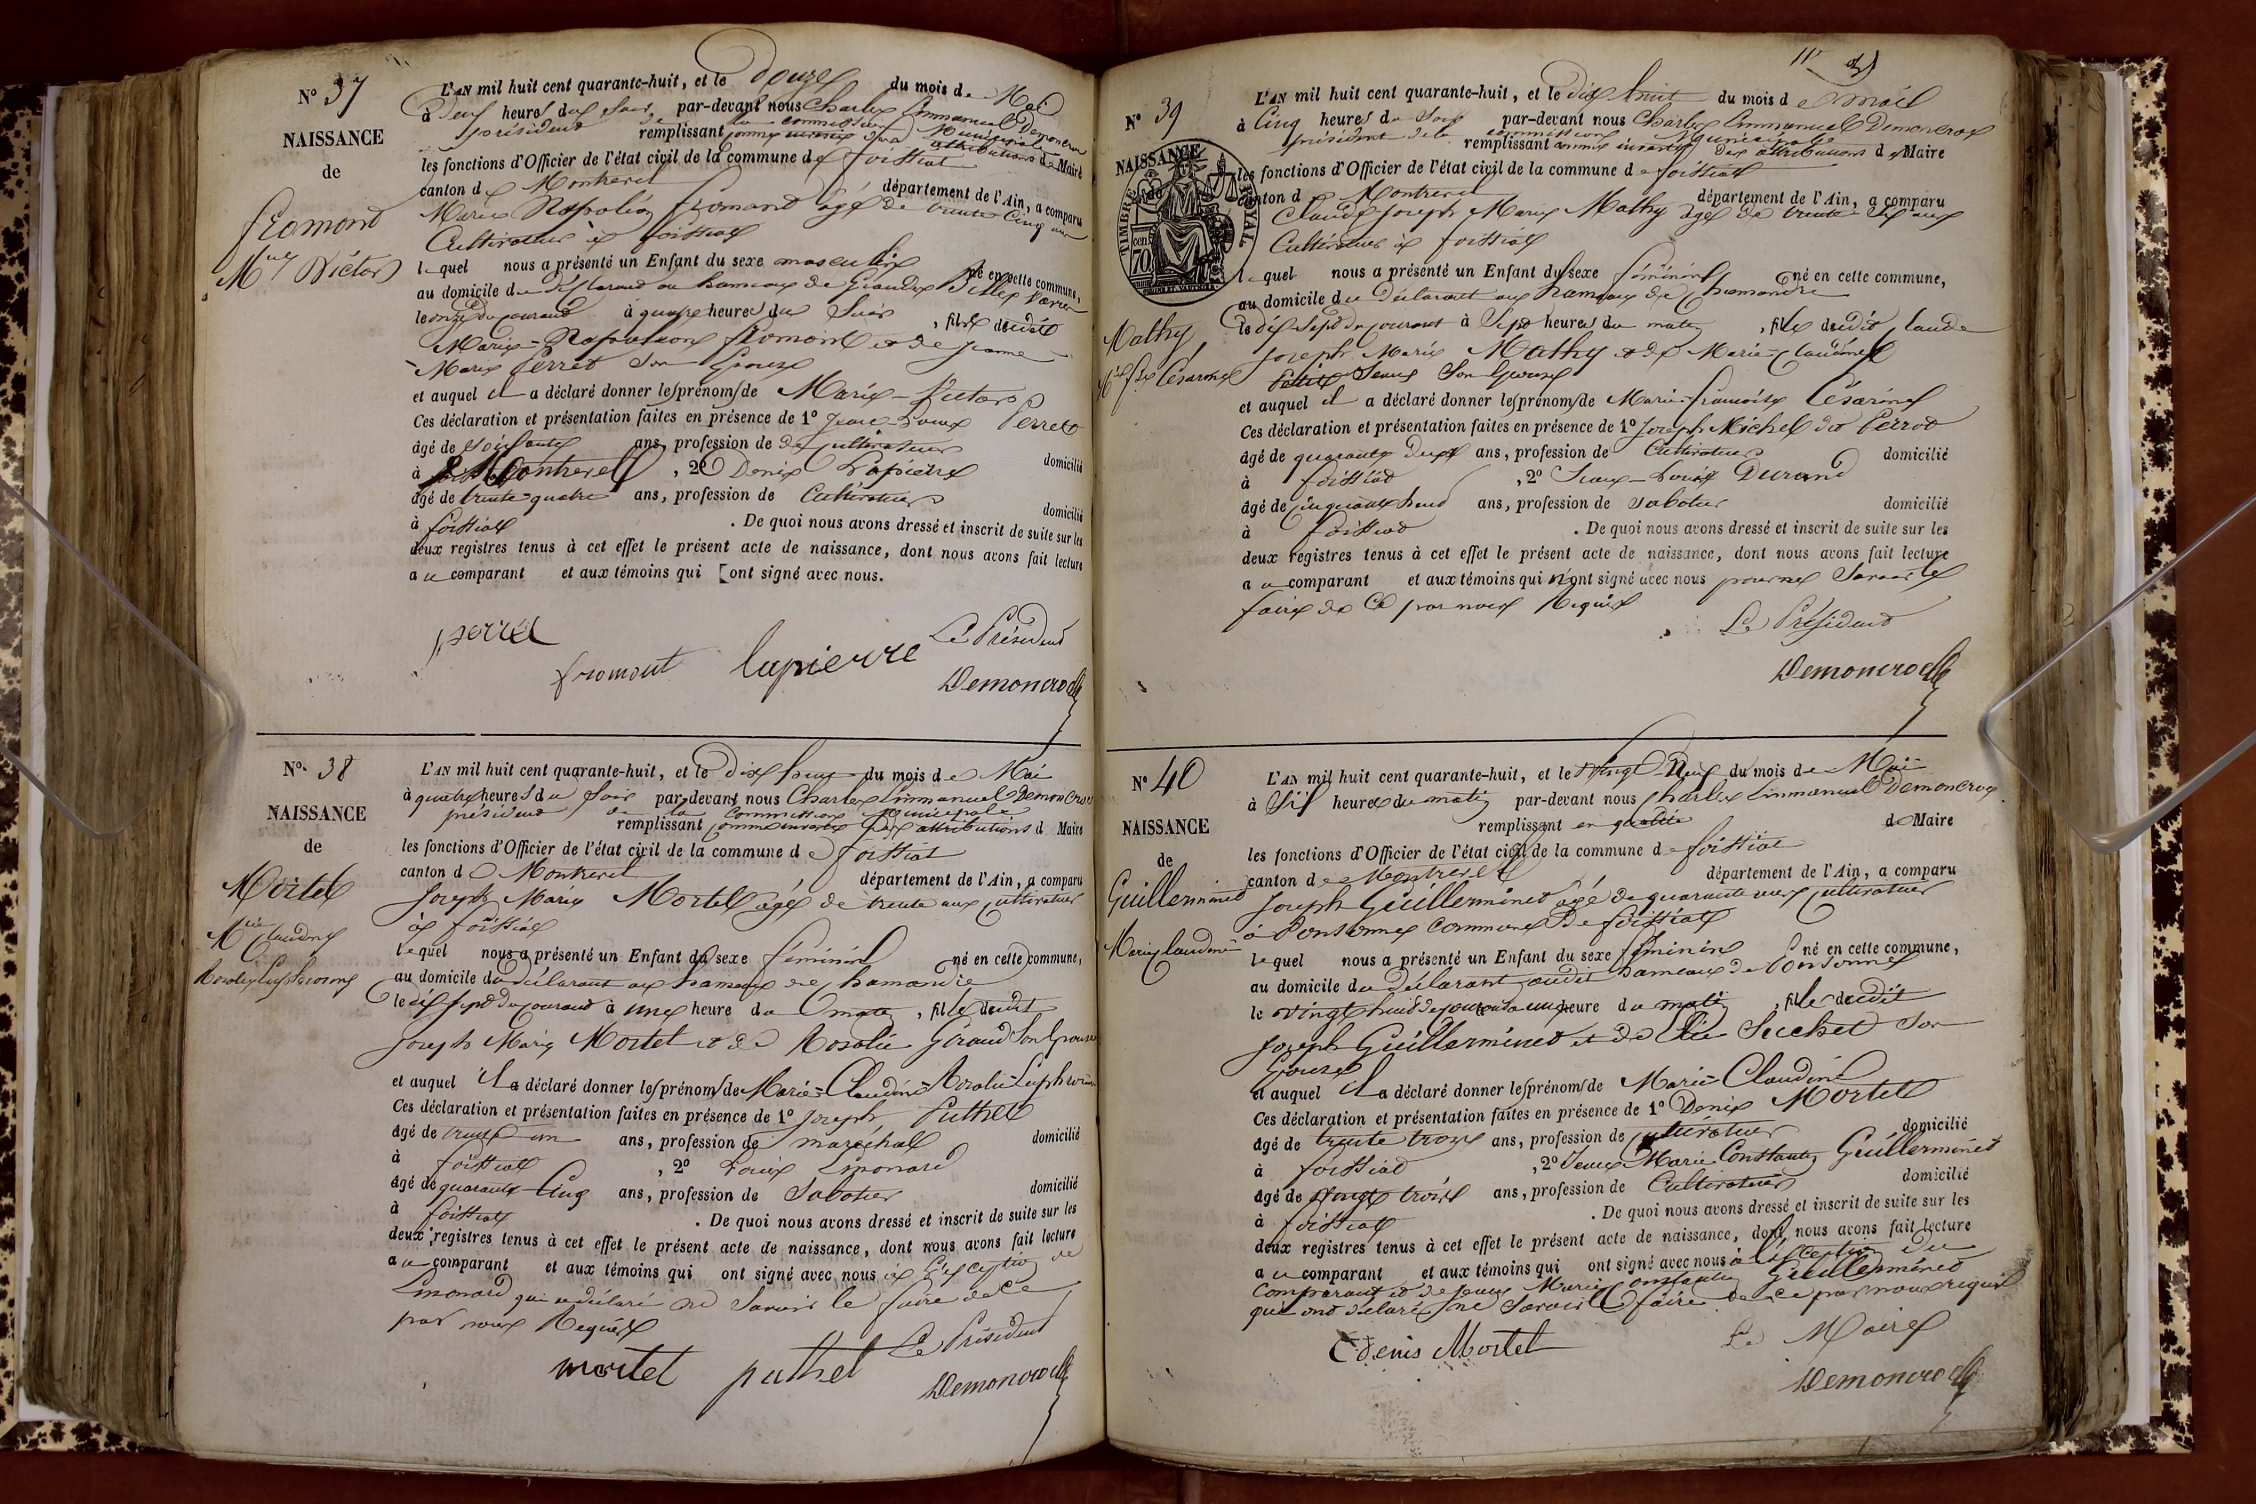 N° 37
NAISSANCE
de
Fromond
M.ie Victor
L'AN mil huit cent quarante-huit, et le Douze du mois de Mai
à deux heures du Soir par-devant nous Charles Emmanuel Demoncroz
président de la commission Municipale
remplissant comme investi des attributions de Maire
les fonctions d'Officier de l'état civil de la commune de foissiat
canton de Montrevel département de l'Ain, a comparu
Marie Napoléon fromond âgé de trente Cinq ans
Cultivateur à foissiat
lequel nous a présenté un Enfant du sexe masculin né en cette commune,
au domicile du déclarant au hameau de
le onze du courant à quatre heures du Soir, fils dudit
Marie-Napoléon fromont et de jeanne
Marie Perret son Epouse
et auquel il a déclaré donner les prénoms de Marie-Victor
Ces déclaration et présentation faites en présence de 1° Jean-Louis Perret
âgé de soixante ans, profession de cultivateur domicilié
à Montrevel, 2° Denis Lapierre
âgé de trente-quatre ans, profession de Cultivateur domicilié
à foissiat. De quoi nous avons dressé et inscrit de suite sur les
deux registres tenus à cet effet le présent acte de naissance, dont nous avons fait lecture
au comparant et aux témoins qui ont signé avec nous.
perret
fromont lapierre Le Président
Demoncroz
N° 38
NAISSANCE
de
Mortel
M.ie Claudine
Rosalie Euphrosine
L'AN mil huit cent quarante-huit, et le Dix huit du mois de Mai
à quatre heures du Soir par-devant nous Charles Emmanuel Demoncroz
président de la Commission Municipale
remplissant comme investi des attributions d Maire
les fonctions d'Officier de l'état civil de la commune de foissiat
canton de Montrevel département de l'Ain, a comparu
Joseph Marie Mortel âgé de trente ans cultivateur
à foissiat
lequel nous a présenté un Enfant du sexe féminin né en cette commune,
au domicile du déclarant au hameau de chamandre
le dix sept du courant à une heure du matin, fille dudit
Joseph Marie Mortel et de Rosalie Giraud Son Epouse
et auquel il a déclaré donner les prénoms de Marie-Claudine-Rosalie Euphrosine
Ces déclaration et présentation faites en présence de 1° Joseph Puthet
âgé de trente un ans, profession de maréchal domicilié
à foissiat, 2° Louis Limonard
âgé de quarante Cinq ans, profession de Sabotier domicilié
à foissiat. De quoi nous avons dressé et inscrit de suite sur les
deux registres tenus à cet effet le présent acte de naissance, dont nous avons fait lecture
au comparant et aux témoins qui ont signé avec nous à l'exception de
Limonard qui a déclaré ne Savoir le faire de ce
par nous Requis
mortel puthet Le Président
Demoncroz
N° 39
NAISSANCE
TIMBRE ROYAL
cen. 70
Mathy
M.ie f.se Césarine
L'AN mil huit cent quarante-huit, et le dix huit du mois de mai
à Cinq heures du Soir par-devant nous Charles Emmanuel Demoncroz
président de la commission Municipale
remplissant comme investi des attributions de Maire
les fonctions d'Officier de l'état civil de la commune de foissiat
canton d Montrevel département de l'Ain, a comparu
Claude Joseph Marie Mathy âgé de trente Six ans
Cultivateur à foissiat
lequel nous a présenté un Enfant du sexe féminin né en cette commune,
au domicile du Déclarant au hameau de Chamandre
le dix Sept du courant à Sept heures du matin, fille dudit Claude
Joseph Marie Mathy et de Marie-Claudine
Jeanne Son Epouse
et auquel il a déclaré donner les prénoms de Marie-françoise Césarine
Ces déclaration et présentation faites en présence de 1° Joseph Michel dit Perrod
âgé de quarante Deux ans, profession de Cultivateur domicilié
à foissiat, 2° Jean-Louis Durand
âgé de cinquante huit ans, profession de Sabotier domicilié
à foissiat. De quoi nous avons dressé et inscrit de suite sur les
deux registres tenus à cet effet le présent acte de naissance, dont nous avons fait lecture
au comparant et aux témoins qui n'ont signé avec nous pour ne Savoir le
faire de Ce par nous Requis
Le Président
Demoncroz
N° 40
NAISSANCE
de
Guillerminet
Marie Claudine
L'AN mil huit cent quarante-huit, et le Vingt Neuf du mois de Mai
à Six heures du matin par-devant nous Charles Emmanuel Demoncroz
remplissant en qualité de Maire
les fonctions d'Officier de l'état civil de la commune de foissiat
canton de Montrevel département de l'Ain, a comparu
Joseph Guillerminet âgé de quarante ans Cultivateur
à Ponsonnex commune de foissiat
lequel nous a présenté un Enfant du sexe féminin né en cette commune,
au domicile du déclarant audit hameau de Ponsonnex
le Vingt huit du courant à une heure du matin, fille dudit
Joseph Guillerminet et de Suchet Son
Epouse
et auquel il a déclaré donner les prénoms de Marie-Claudine
Ces déclaration et présentation faites en présence de 1° Denis Mortel
âgé de trente trois ans, profession de cultivateur domicilié
à foissiat, 2° Jean Marie Constantin Guillerminet
âgé de Vingt trois ans, profession de Cultivateur domicilié
à foissiat. De quoi nous avons dressé et inscrit de suite sur les
deux registres tenus à cet effet le présent acte de naissance, dont nous avons fait lecture
au comparant et aux témoins qui ont signé avec nous à l'exception du
Comparant et de Jean Marie Constantin Guillerminet
qui ont déclaré ne Savoir le faire de ce par nous requis
Denis Mortel Le Maire
Demoncroz